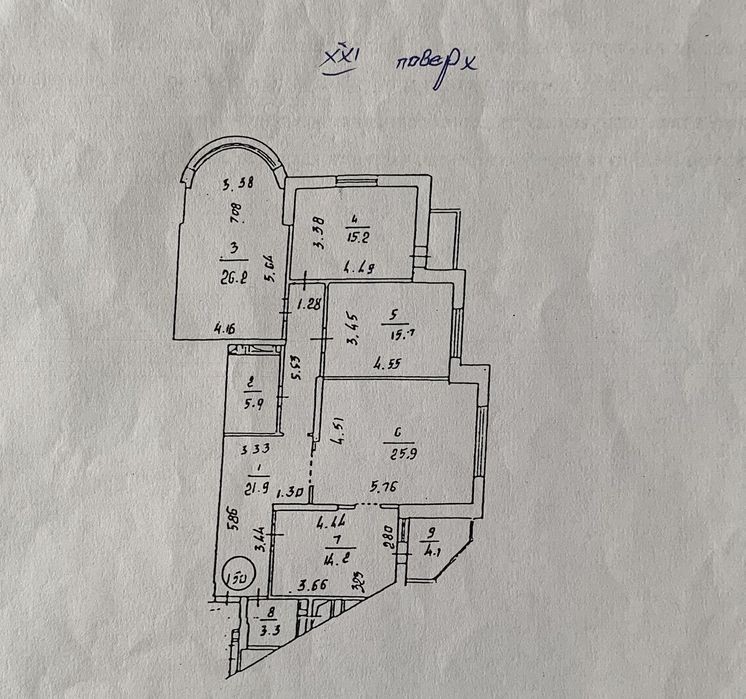 XXI поверх
3.38
7.08
3
26.2
5.64
4.16
3.38
4
15.2
4.49
1.28
3.45
5
15.7
4.55
5.53
2
5.9
3.33
1
21.9
1.30
4.51
6
25.9
5.76
5.86
3.44
4.44
7
14.2
2.80
3.66
3.03
9
4.1
150
8
3.3